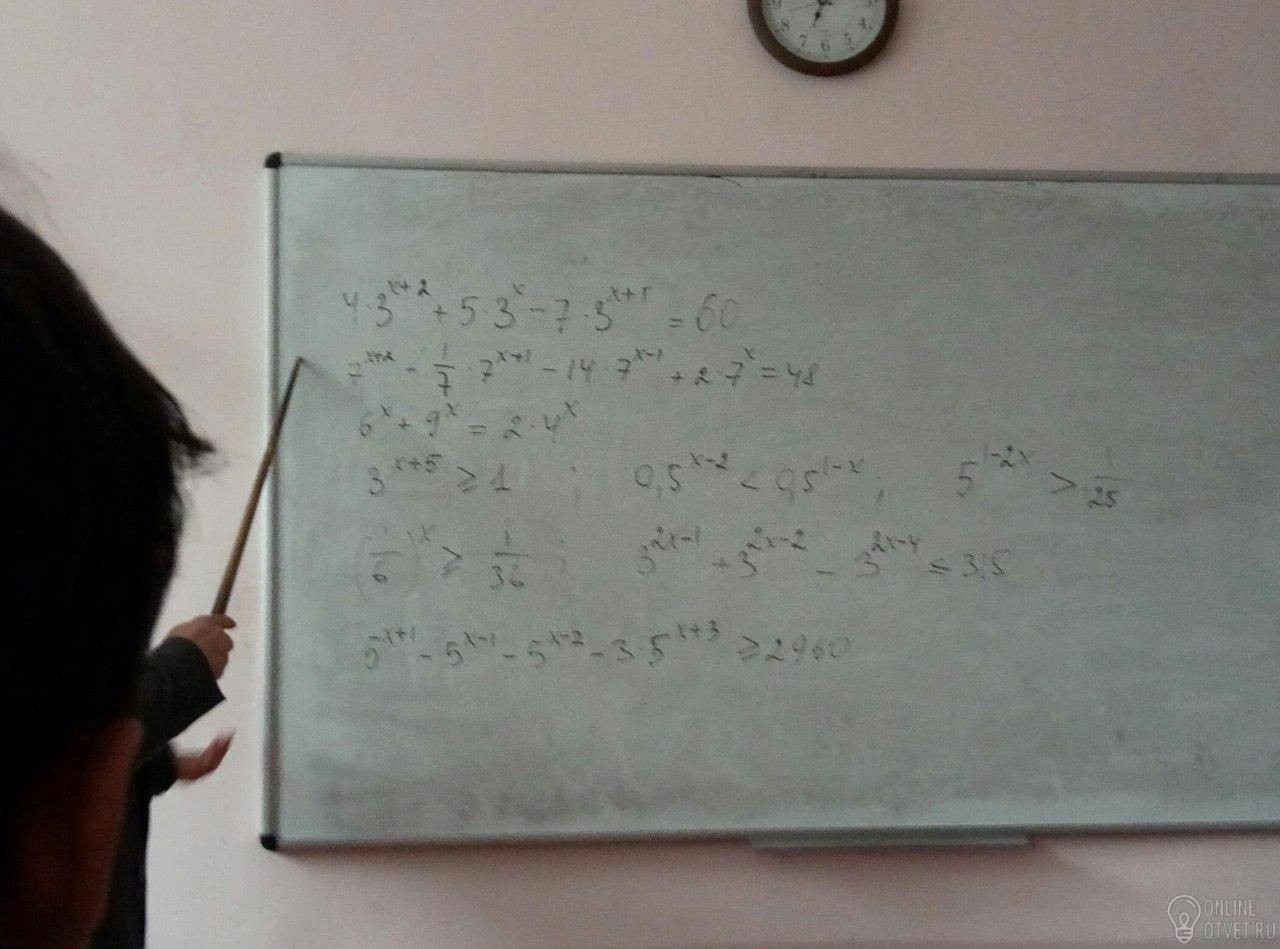 9 3
8 4
7 6 5
4·3^{x+2} + 5·3^x - 7·3^{x+1} = 60
7^{x+2} - \frac{1}{7}·7^{x+1} - 14·7^{x-1} + 2·7^x = 48
6^x + 9^x = 2·4^x
3^{x+5} ≥ 1 ; 0,5^{x-2} < 0,5^{1-x} ; 5^{1-2x} > \frac{1}{25}
(\frac{1}{6})^x ≥ \frac{1}{36} ; 3^{2x-1} + 3^{2x-2} - 3^{2x-4} ≤ 315
5^{-x+1} - 5^{x-1} - 5^{x-2} - 3·5^{x+3} ≥ 2960
ONLINE
OTVET.RU